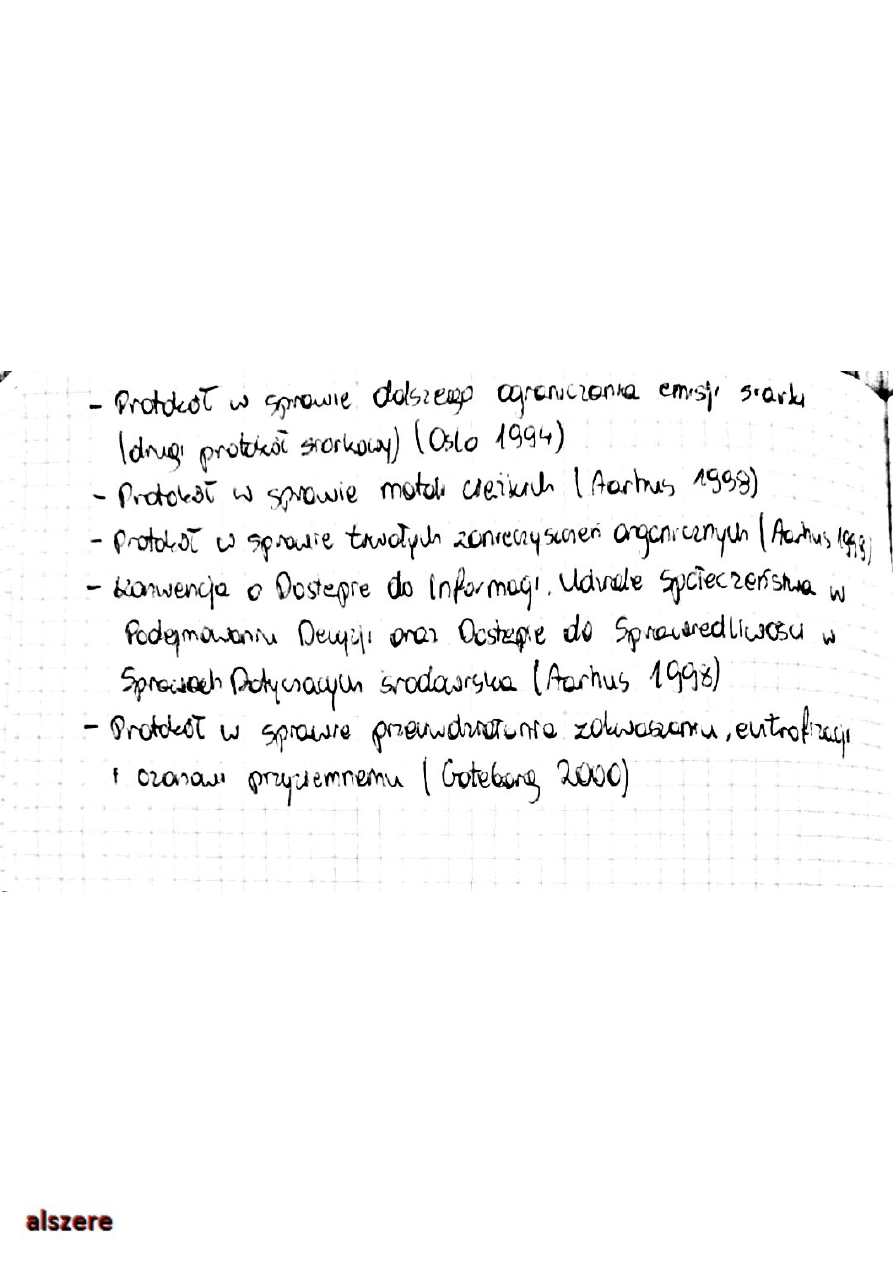 - Protokół w sprawie dalszego ograniczania emisji siarki
(drugi protokół siarkowy) (Oslo 1994)
- Protokół w sprawie metali ciężkich (Aarhus 1998)
- Protokół w sprawie trwałych zanieczyszczeń organicznych (Aarhus 1998)
- Konwencja o Dostępie do Informacji, Udziale Społeczeństwa w
Podejmowaniu Decyzji oraz Dostępie do Sprawiedliwości w
Sprawach Dotyczących środowiska (Aarhus 1998)
- Protokół w sprawie przeciwdziałania zakwaszaniu, eutrofizacji
i ozonowi przyziemnemu (Goteborg 2000)
alszere